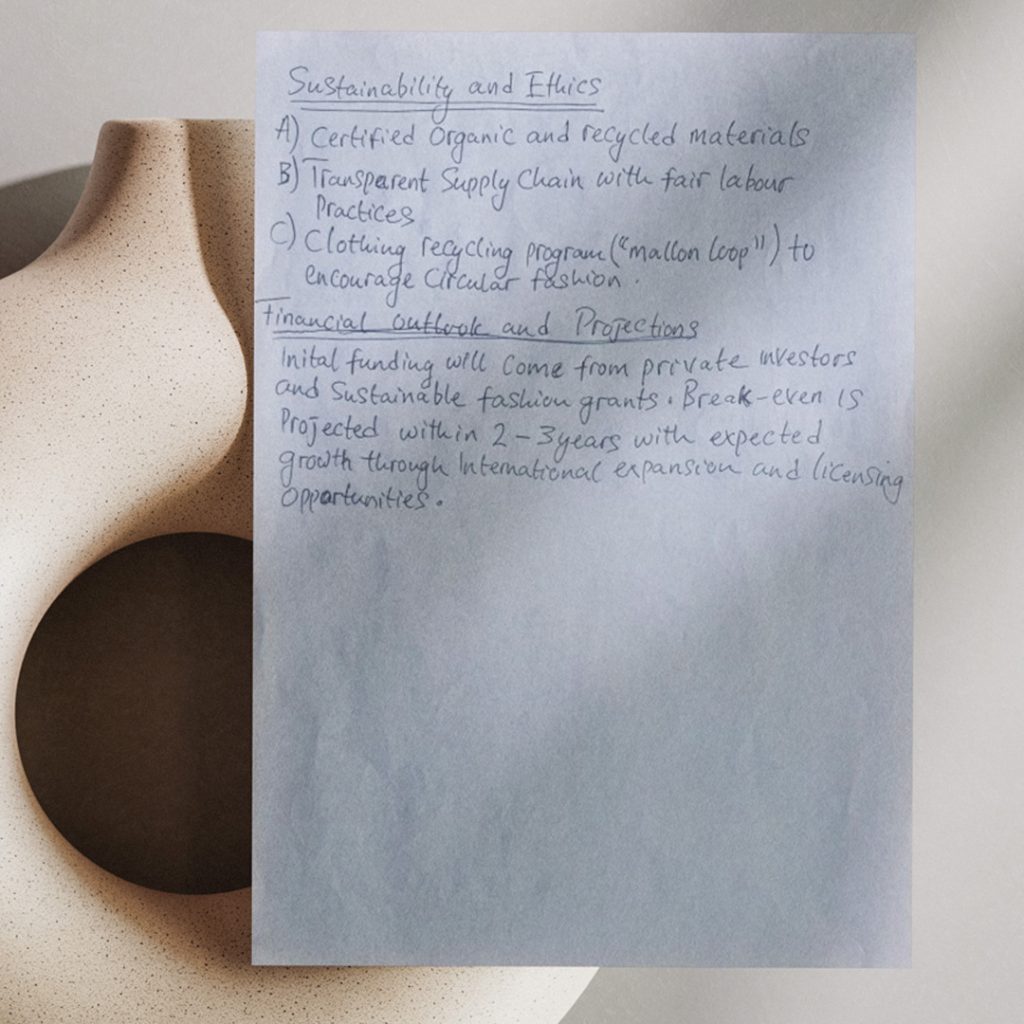 Sustainability and Ethics
A) Certified Organic and recycled materials
B) Transparent Supply Chain with fair labour
Practices
C) Clothing recycling program ("mallon loop") to
encourage Circular fashion.
Financial outlook and Projections
Inital funding will Come from private investors
and Sustainable fashion grants. Break-even is
Projected within 2-3 years with expected
growth through International expansion and licensing
Opportunities.